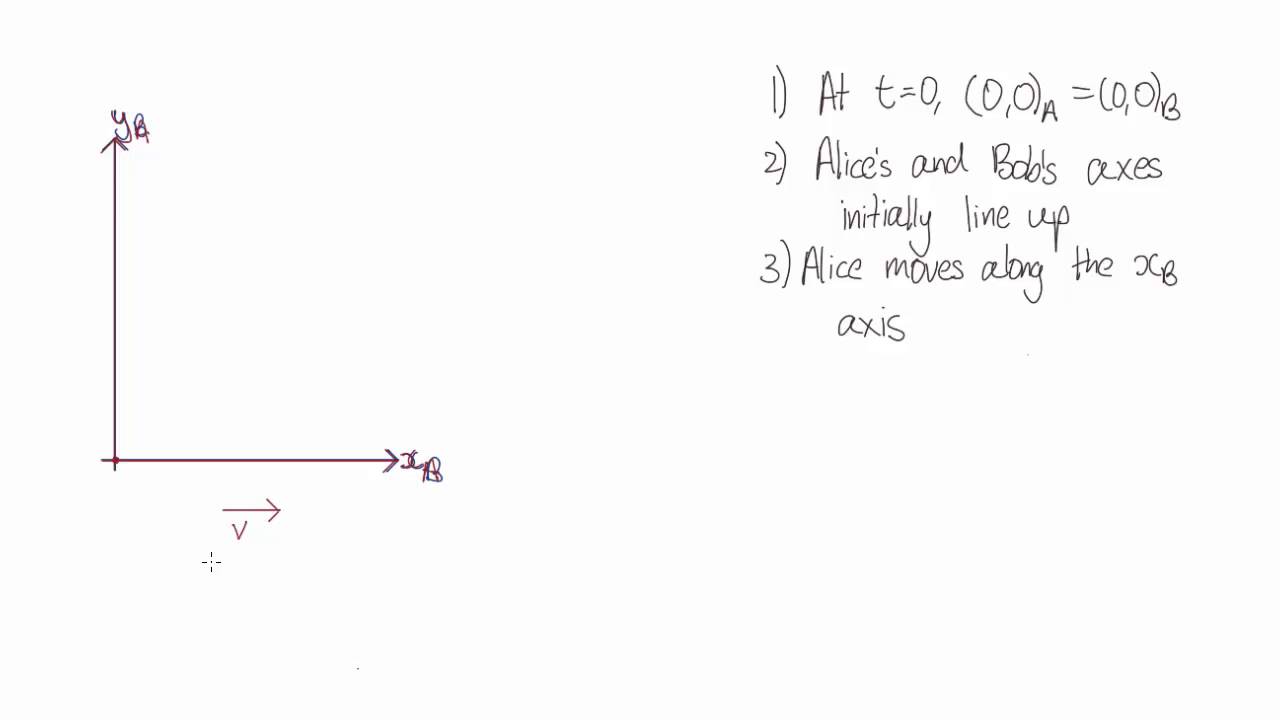 y_B
x_B
v
1) At t=0, (0,0)_A = (0,0)_B
2) Alice's and Bob's axes
initially line up
3) Alice moves along the x_B
axis